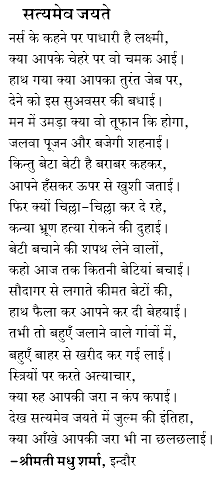 सत्यमेव जयते
नर्स के कहने पर पाधारी है लक्ष्मी,
क्या आपके चेहरे पर वो चमक आई।
हाथ गया क्या आपका तुरंत जेब पर,
देने को इस सुअवसर की बधाई।
मन में उमड़ा क्या वो तूफान कि होगा,
जलवा पूजन और बजेगी शहनाई।
किन्तु बेटा बेटी है बराबर कहकर,
आपने हँसकर ऊपर से खुशी जताई।
फिर क्यों चिल्ला-चिल्ला कर दे रहे,
कन्या भ्रूण हत्या रोकने की दुहाई।
बेटी बचाने की शपथ लेने वालों,
कहो आज तक कितनी बेटियां बचाई।
सौदागर से लगाते कीमत बेटों की,
हाथ फैला कर आपने कर दी बेहयाई।
तभी तो बहुएँ जलाने वाले गांवों में,
बहुएँ बाहर से खरीद कर गई लाई।
स्त्रियों पर करते अत्याचार,
क्या रुह आपकी जरा न कंप कपाई।
देख सत्यमेव जयते में जुल्म की इंतिहा,
क्या आँखे आपकी जरा भी ना छलछलाई।
-श्रीमती मधु शर्मा, इन्दौर